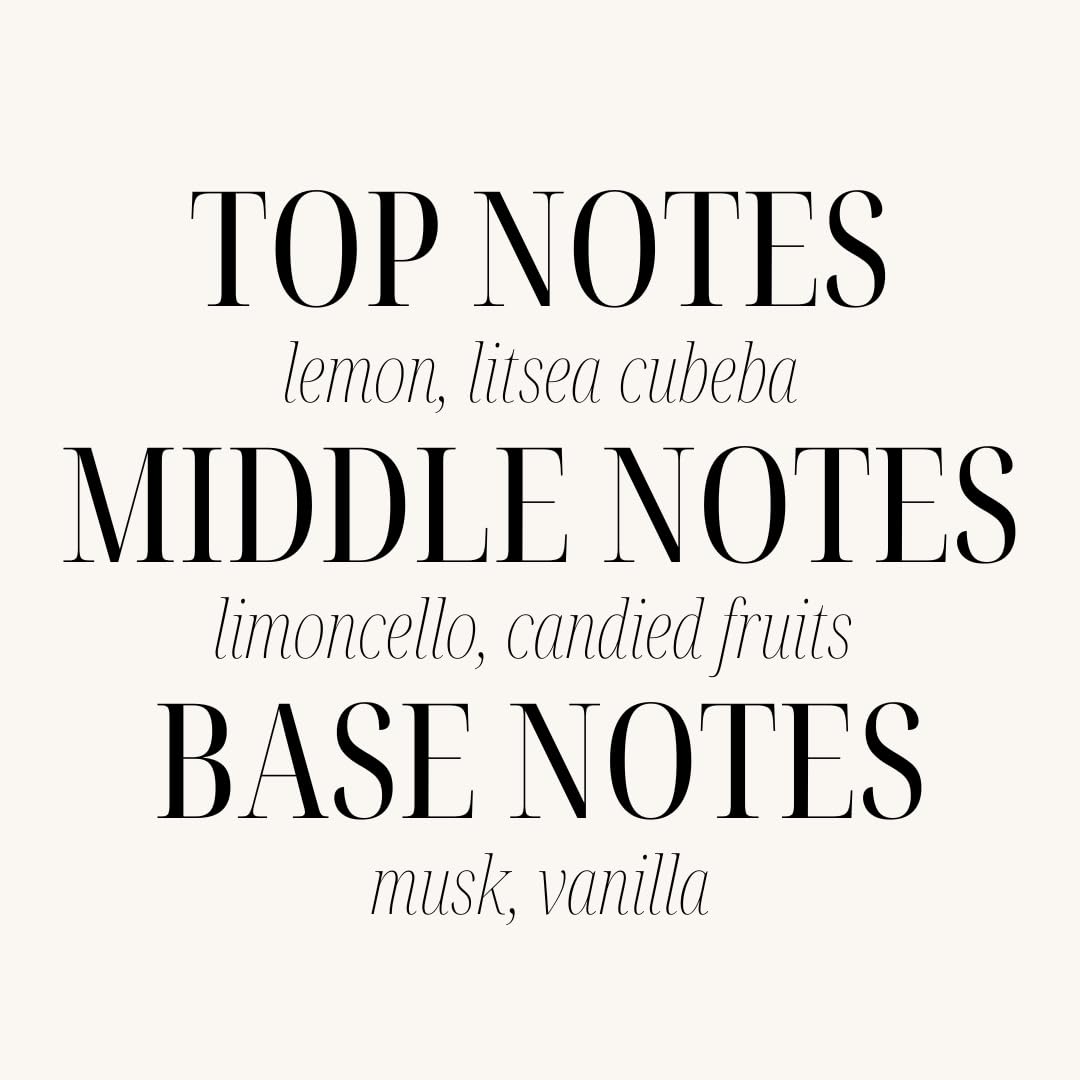 TOP NOTES
lemon, litsea cubeba
MIDDLE NOTES
limoncello, candied fruits
BASE NOTES
musk, vanilla